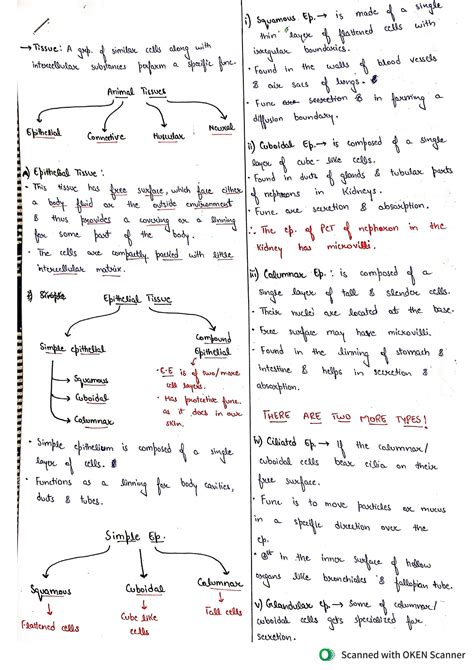 → Tissue: A grp. of similar cells along with
intercellular substances perform a specific func.
Animal Tissues
Epithelial
Connective
Muscular
Neural
A) Epithelial Tissue:
• This tissue has free surface, which face either
a body fluid or the outside environment
& thus provides a covering or a linning
for some part of the body.
• The cells are compactly packed with little
intercellular matrix.
Epithelial Tissue
Simple epithelial
→ Squamous
→ Cuboidal
→ Columnar
Compound
Epithelial
• C.E is of two/more
cell layers.
• Has protective func.
as it does in our
skin.
• Simple epithelium is composed of a single
layer of cells.
• Functions as a linning for body cavities,
ducts & tubes.
Simple Ep.
Squamous
Cuboidal
Columnar
Flattened cells
Cube like
cells
Tall cells
i) Squamous Ep. → is made of a single
thin layer of flattened cells with
irregular boundaries.
• Found in the walls of blood vessels
& air sacs of lungs.
• Func are secretion & in forming a
diffusion boundary.
ii) Cuboidal Ep. → is composed of a single
layer of cube-like cells.
• Found in ducts of glands & tubular parts
of nephrons in Kidneys.
• Func. are secretion & absorption.
∴ The ep. of PCT of nephron in the
Kidney has microvilli.
iii) Columnar Ep.: is composed of a
single layer of tall & slender cells.
• Their nuclei are located at the base.
• Free surface may have microvilli.
• Found in the linning of stomach &
intestine & helps in secretion &
absorption.
THERE ARE TWO MORE TYPES!
iv) Ciliated Ep. → If the columnar/
cuboidal cells bear cilia on their
free surface.
• Func is to move particles or mucus
in a specific direction over the
ep.
• In the inner surface of hollow
organs like bronchioles & fallopian tube.
v) Glandular Ep. → Some of columnar/
cuboidal cells gets specialized for
secretion.
Scanned with OKEN Scanner